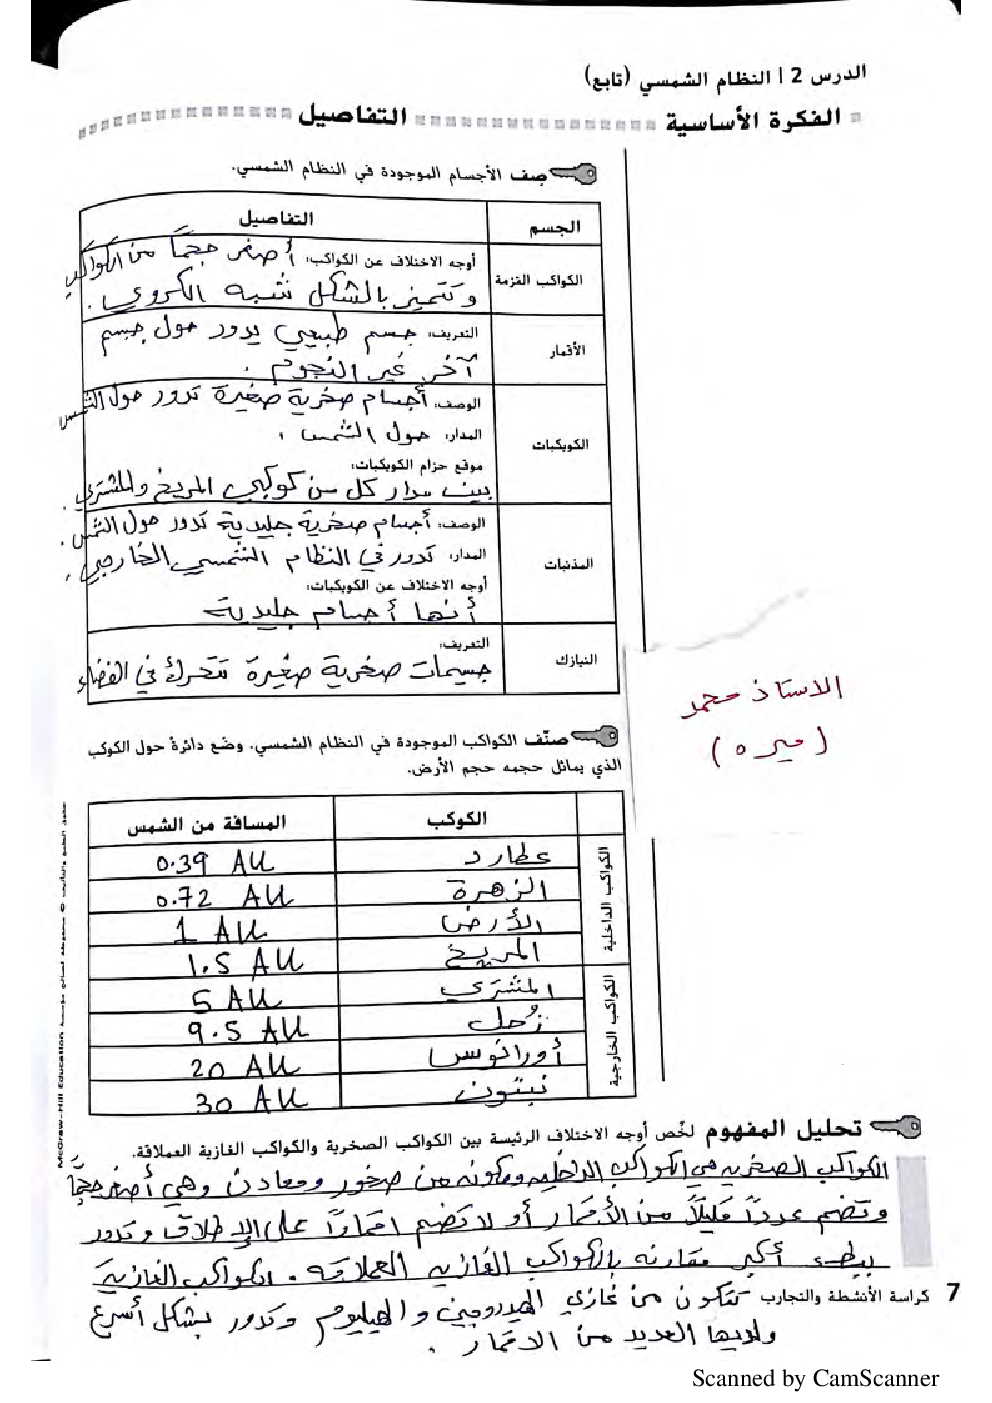 الدرس 2 | النظام الشمسي (تابع)
الفكرة الأساسية التفاصيل
صِف الأجسام الموجودة في النظام الشمسي.
الجسم التفاصيل
الكواكب القزمة
أوجه الاختلاف عن الكواكب: أصغر حجمًا من الكواكب
وتتميز بالشكل شبه الكروي.
الأقمار
التعريف: جسم طبيعي يدور حول جسم
آخر غير النجوم.
الكويكبات
الوصف: أجسام صخرية صغيرة تدور حول الشمس
المدار: حول الشمس.
موقع حزام الكويكبات:
بين مدار كل من كوكبي المريخ والمشتري.
المذنبات
الوصف: أجسام صخرية جليدية تدور حول الشمس.
المدار: تدور في النظام الشمسي الخارجي.
أوجه الاختلاف عن الكويكبات:
أنها أجسام جليدية
النيازك
التعريف:
جسيمات صخرية صغيرة تتحرك في الفضاء
الاستاذ محمد
(ميره)
صنّف الكواكب الموجودة في النظام الشمسي. وضَع دائرة حول الكوكب
الذي يماثل حجمه حجم الأرض.
الكوكب المسافة من الشمس
الكواكب الداخلية
عطارد 0.39 AU
الزهرة 0.72 AU
الأرض 1 AU
المريخ 1.5 AU
الكواكب الخارجية
المشتري 5 AU
زُحل 9.5 AU
أورانوس 20 AU
نبتون 30 AU
تحليل المفهوم لخّص أوجه الاختلاف الرئيسة بين الكواكب الصخرية والكواكب الغازية العملاقة.
الكواكب الصخريه هي الكواكب الداخليه ومكونه من صخور ومعادن وهي أصغر حجمًا
وتضم عددًا قليلًا من الأقمار أو لا تضم اقمارًا على الإطلاق وتدور
ببطء أكبر مقارنه بالكواكب الغازيه العملاقه. الكواكب الغازية
تتكون من غازي الهيدروجين والهيليوم وتدور بشكل أسرع
ولديها العديد من الاقمار.
7 كراسة الأنشطة والتجارب
McGraw-Hill Education
Scanned by CamScanner